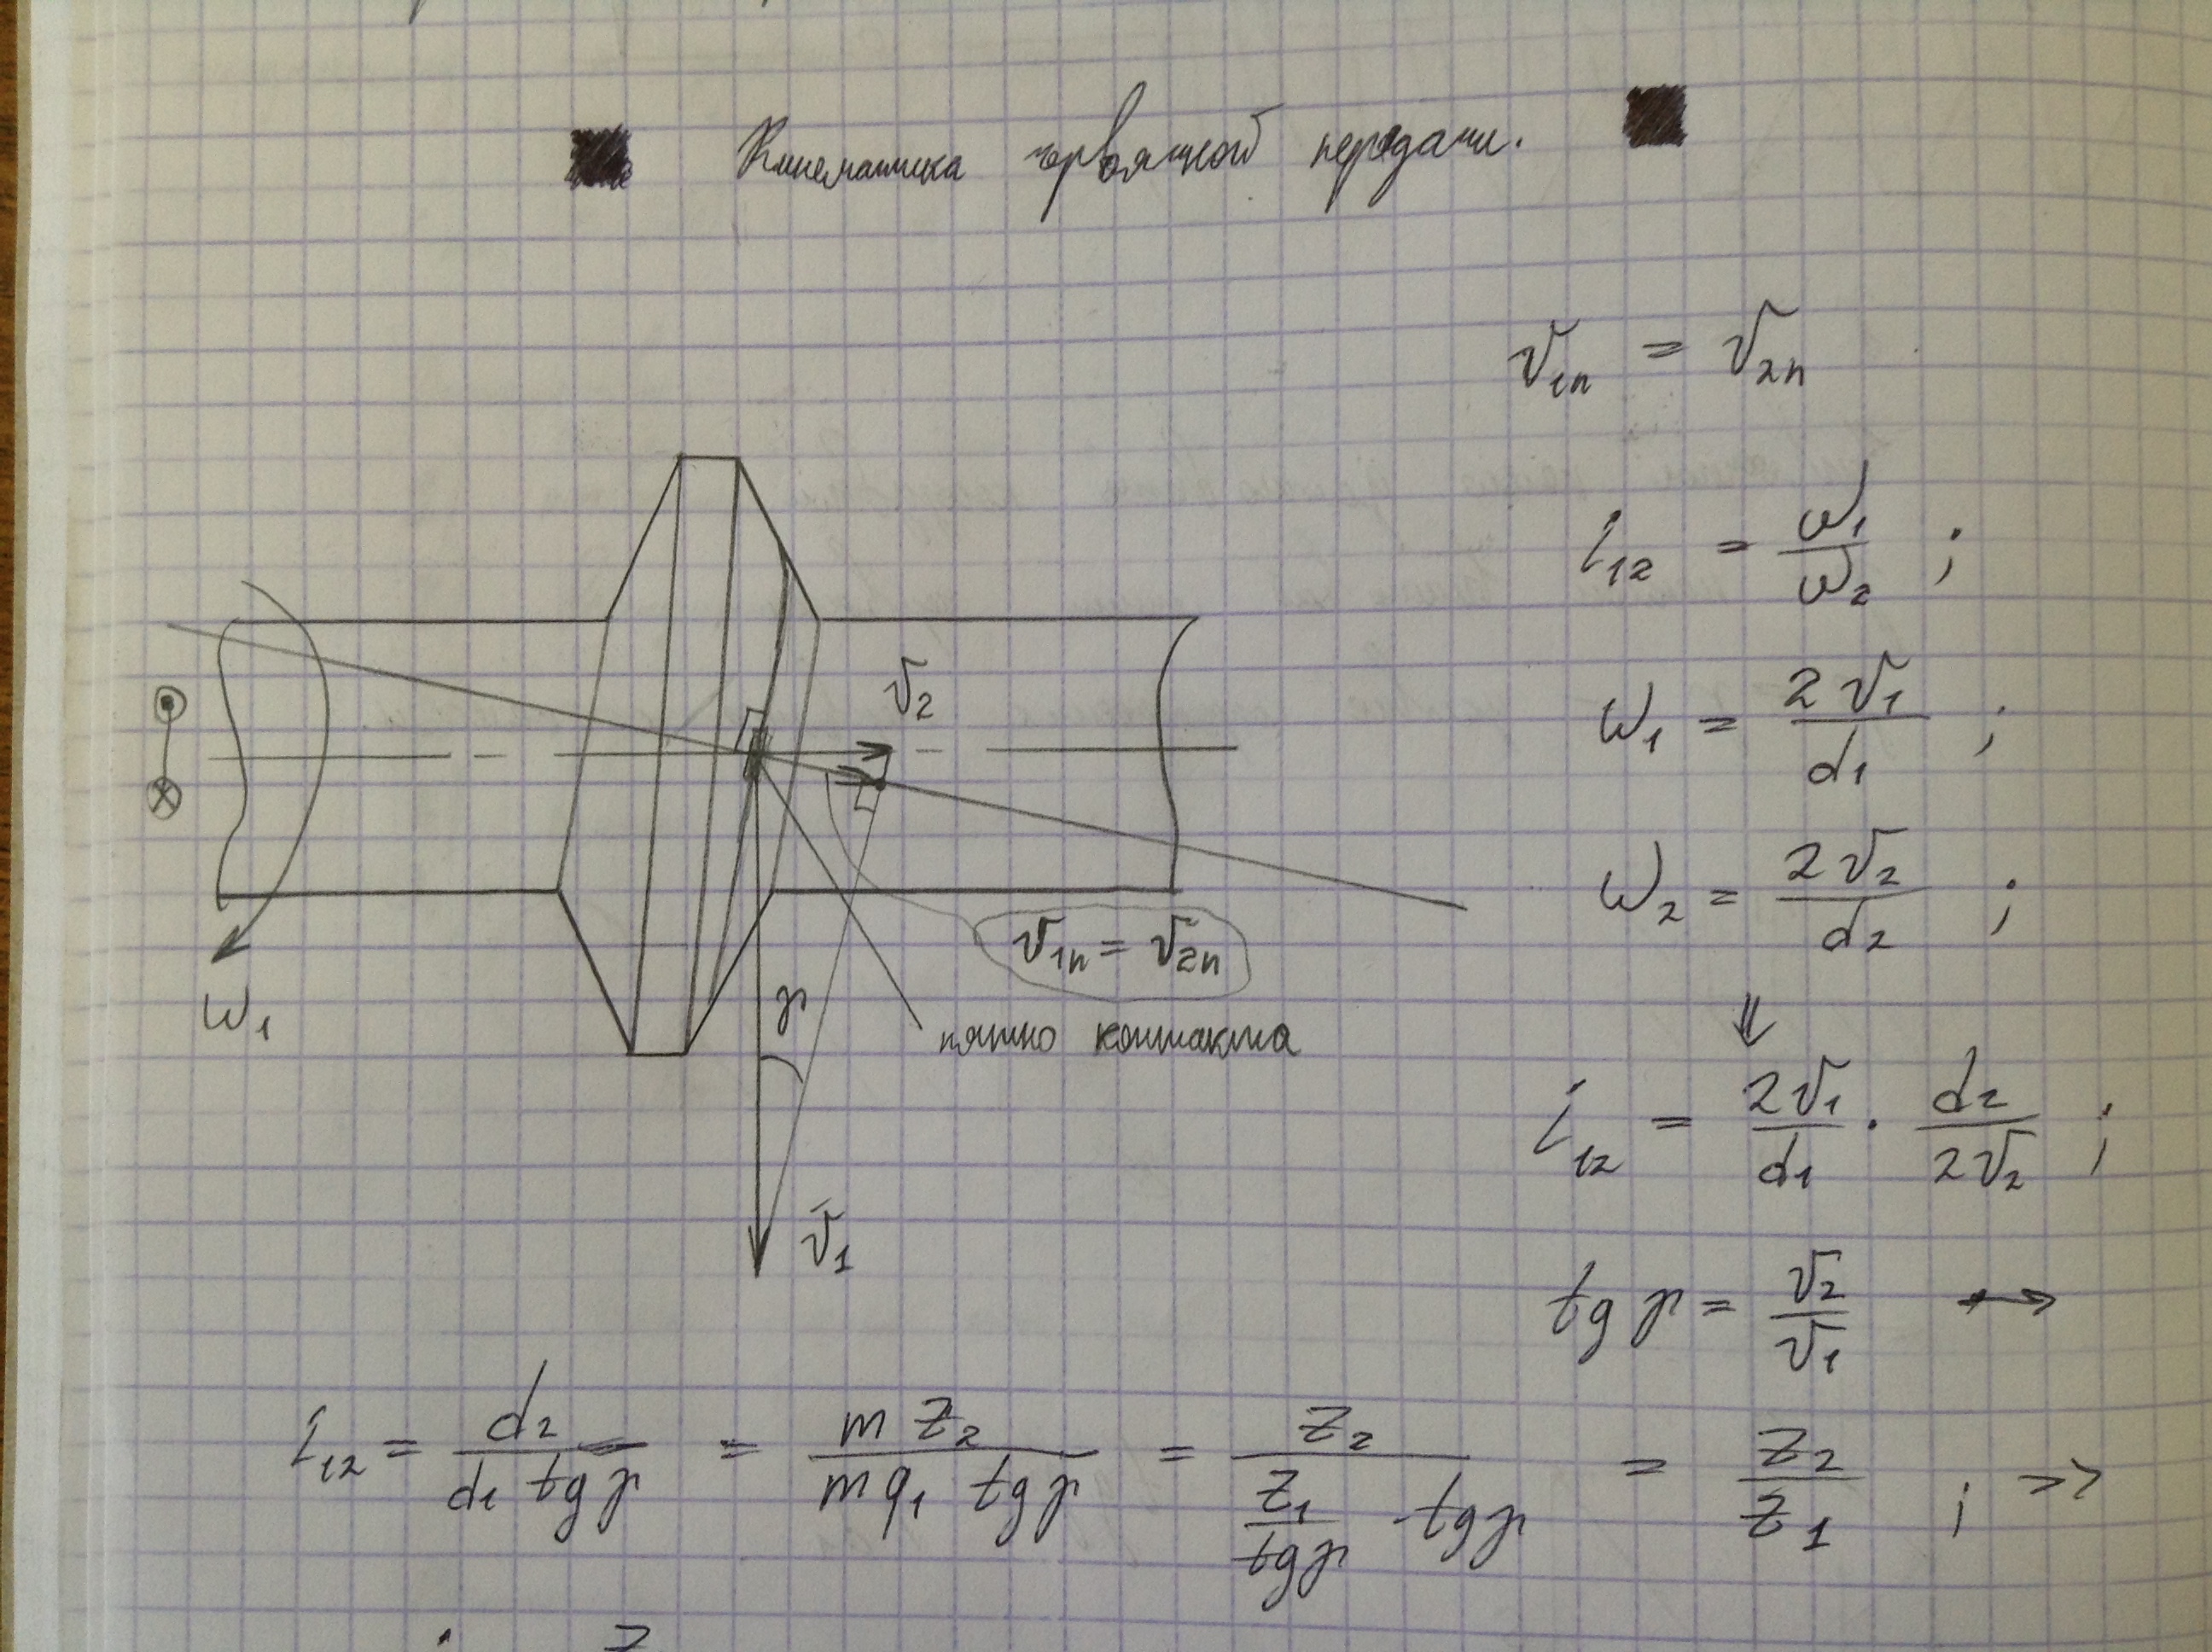 Кинематика червячной передачи.
v₁ₙ = v₂ₙ
i₁₂ = ω₁/ω₂ ;
ω₁ = 2v₁/d₁ ;
ω₂ = 2v₂/d₂ ;
⇓
i₁₂ = 2v₁/d₁ · d₂/2v₂ ;
tg γ = v₂/v₁ →
v̄₂
v₁ₙ = v₂ₙ
ω₁
γ
пятно контакта
v̄₁
i₁₂ = d₂/(d₁ tg γ) = m z₂/(m q₁ tg γ) = z₂/((z₁/tg γ) · tg γ) = z₂/z₁ ; =>